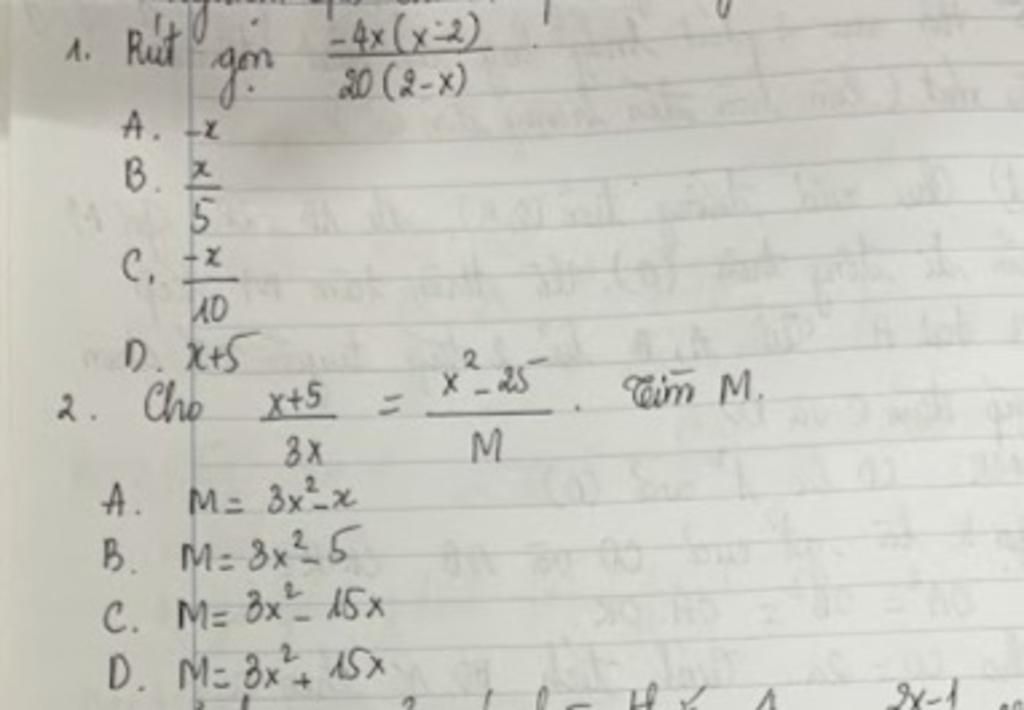 1. Rút gọn -4x(x-2) / 20(2-x).
A. -x
B. x/5
C. -x/10
D. x+5
2. Cho x+5/3x = x²-25/M. Tìm M.
A. M= 3x²-x
B. M= 3x²-5
C. M= 3x²- 15x
D. M= 3x²+ 15x
2x-1